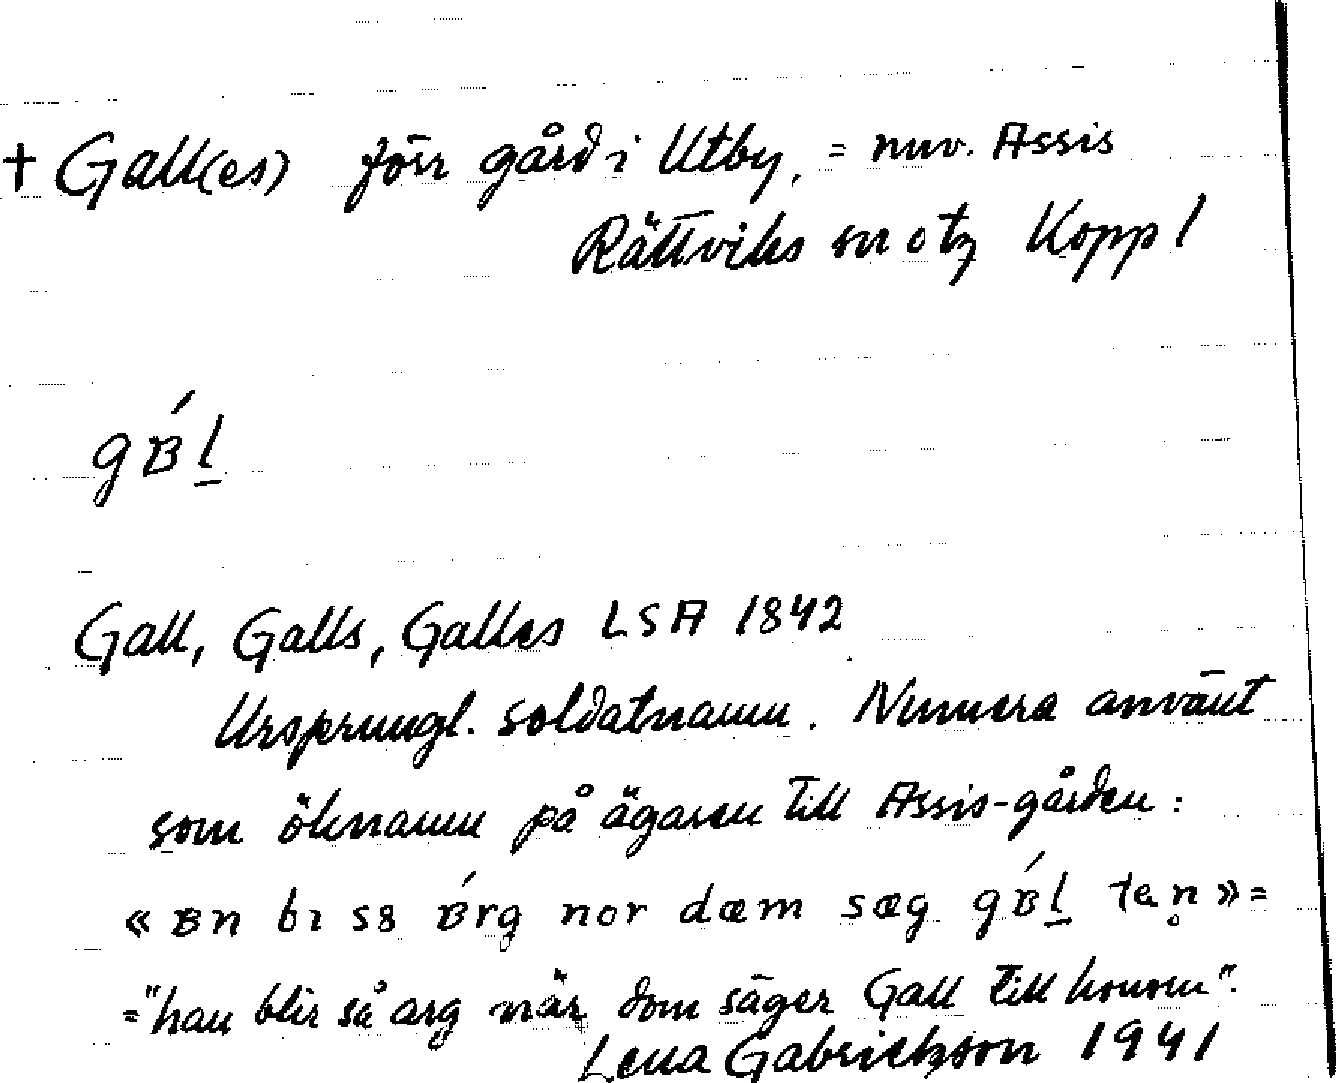 † Gall(es) förr gård i Utby, = nuv. Assis
Rättviks sn o tg Kopp l
gʙ́l̲
Gall, Galls, Galles LSA 1842
Ursprungl. soldatnamn. Numera använt
som öknamn på ägaren till Assis-gården:
« ʙn bı s8 ʙ́rg nor dæm sæg gʙ́l̲ te n̥ » =
= "han blir så arg när dom säger Gall till honom".
Lena Gabrielsson 1941